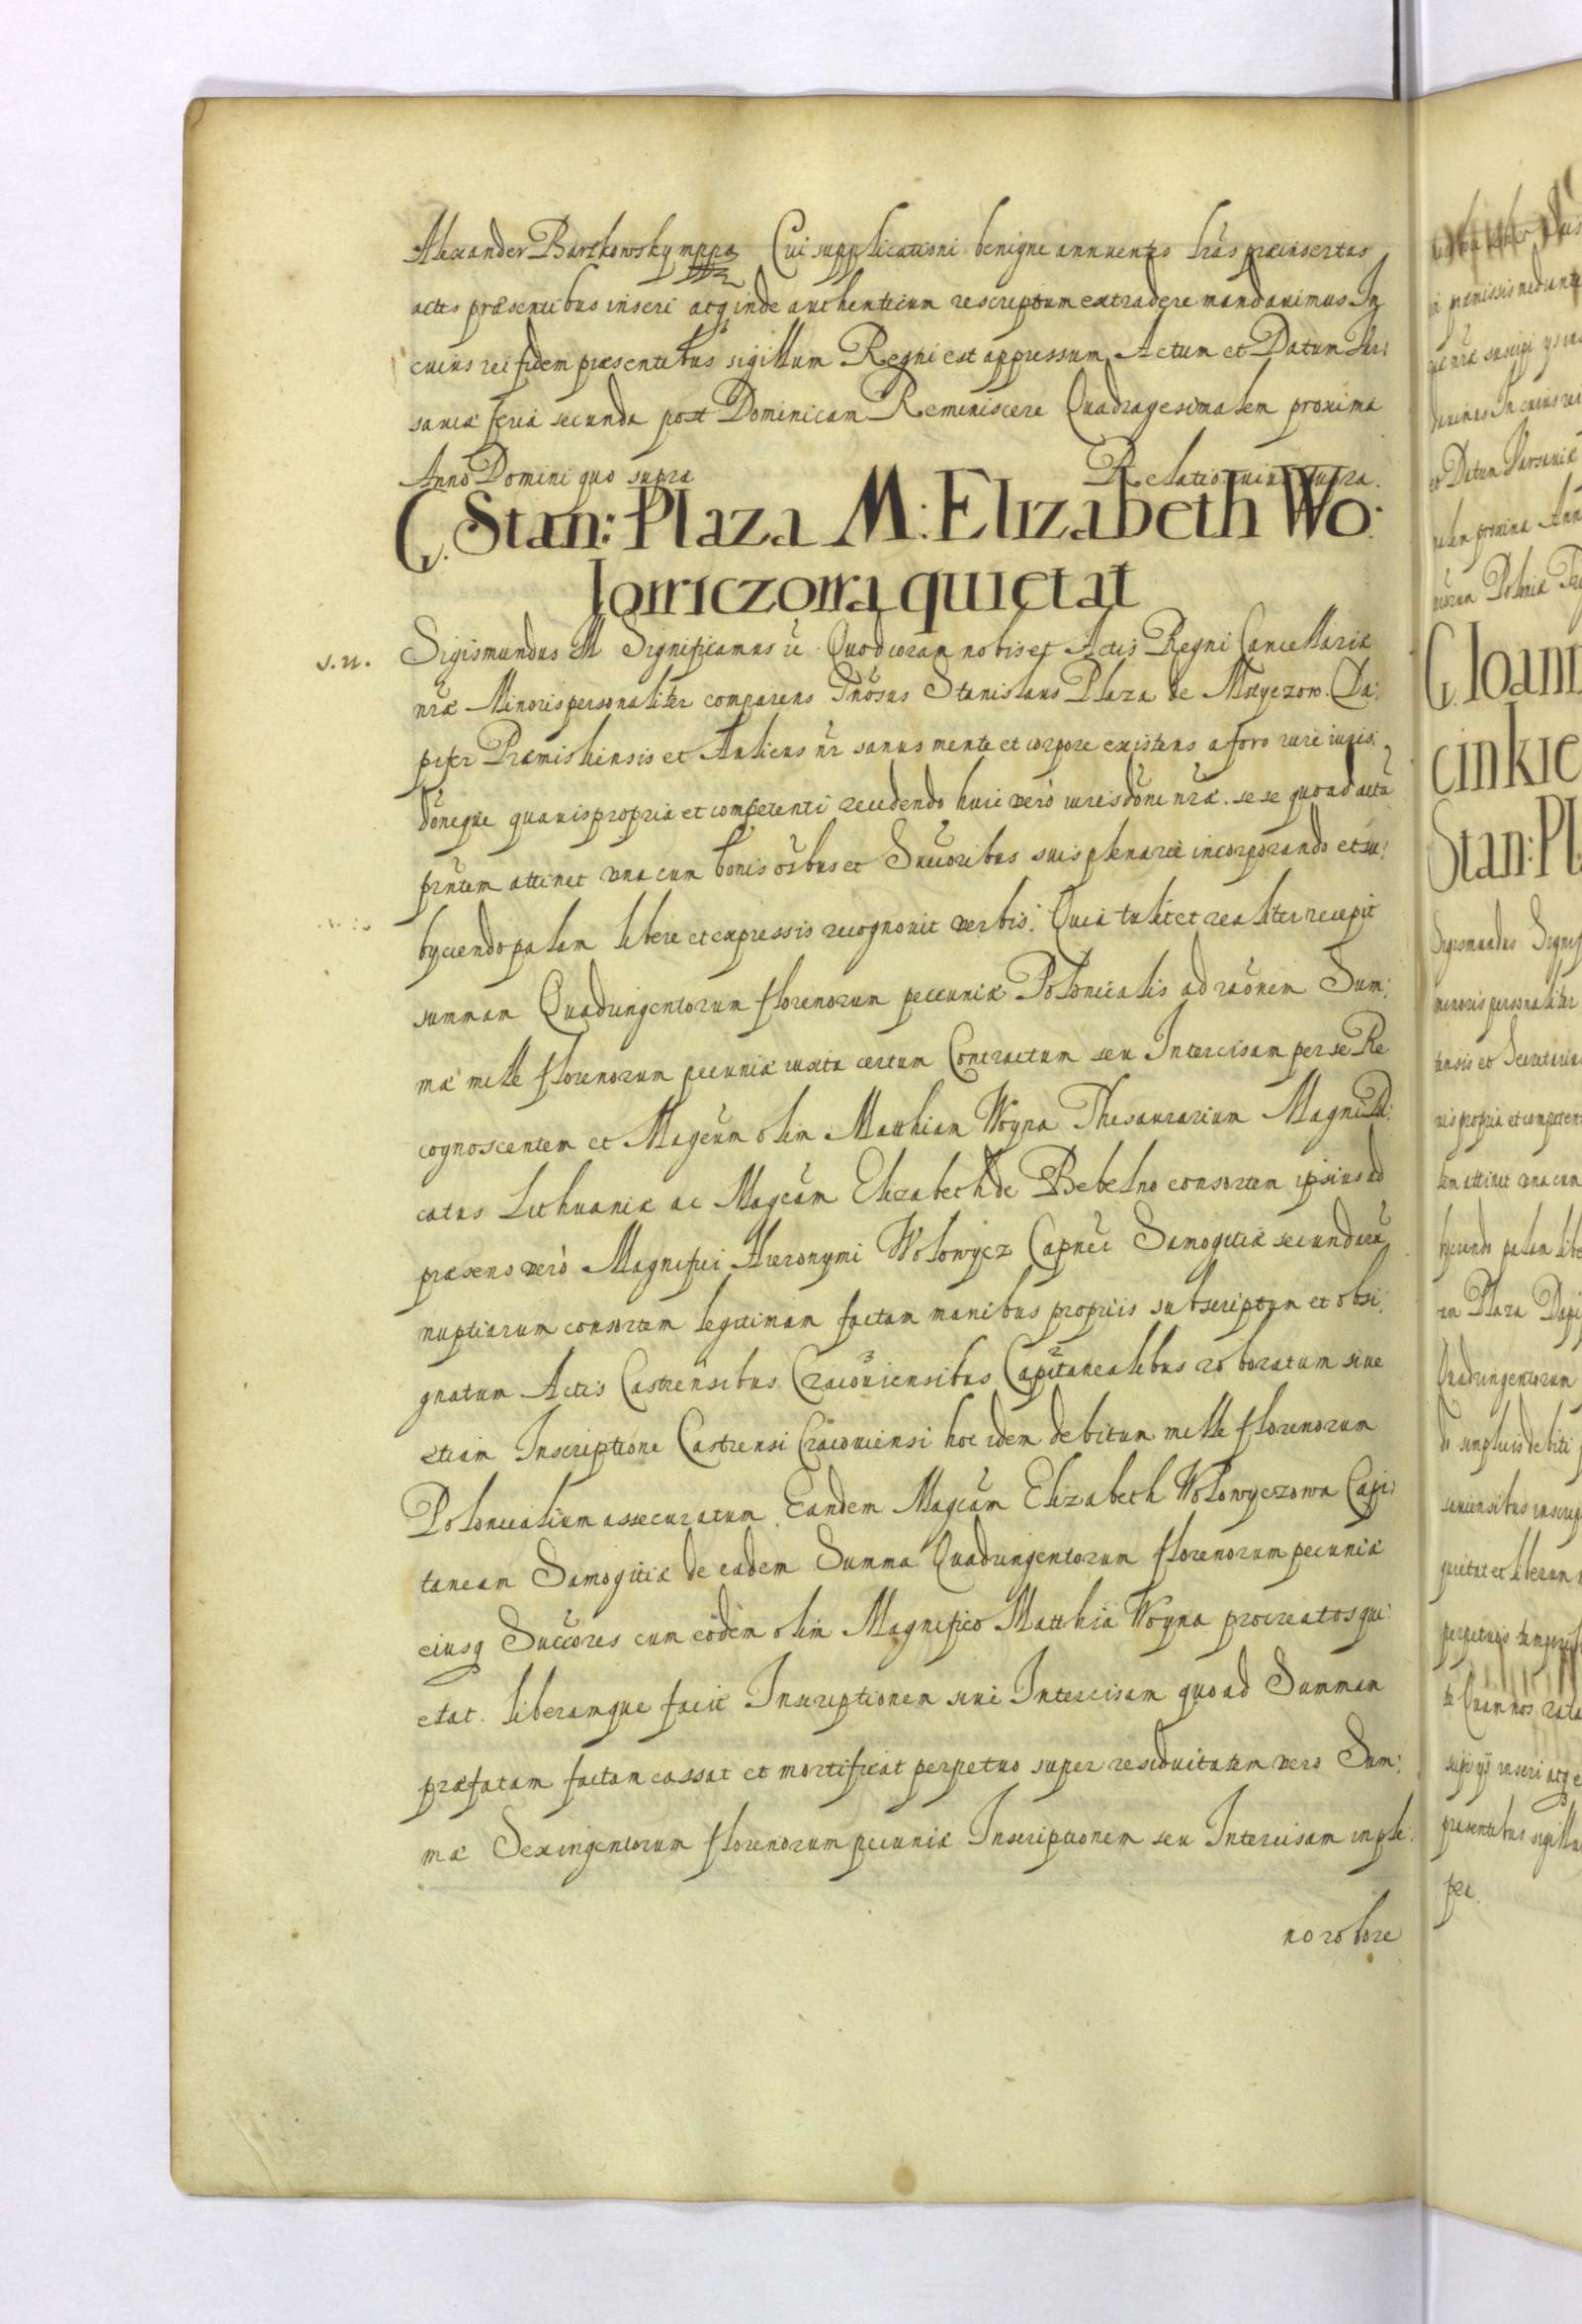 Alexander Bartkowsky mppa Cui supplicationi benigne annuentes lrãs præinsertas
actis præsentibus inseri atq inde authenticum rescriptum extradere mandauimus In
cuius rei fidem præsentibus sigillum Regni est appressum Actum et Datum Var:
sauiæ feria secunda post Dominicam Reminiscere Quadragesimalem proxima
Anno Domini quo supra Relatio cuius supra.
G. Stan: Plaza M: Elizabeth Wo:
lowiczowa quietat
s. n. Sigismundus III Significamus &c Quod coram nobis et Actis Regni Cancellariæ
nræ Minoris personaliter comparens Gnõsus Stanislaus Plaza de Mstyczow. Da:
pifer Præmisliensis et Aulicus nr sanus mente et corpore existens a foro iure iuris:
dõneque quauis propria et competenti recedendo huic verò iurisdõni nræ. se se quoad actũ
prñtem attinet vna cum bonis oĩbus et Succoribus suis plenarie incorporando et su:
byciendo palam libere et expressis recognouit verbis: Quia tulit et realiter recepit
summam Quadringentorum florenorum pecuniæ Polonicalis ad raõnem Sum:
mæ mille florenorum pecuniæ iuxta certum Contractum seu Intercisam per se Re
cognoscentem et Magcũm olim Matthiam Woyna Thesaurarium Magni D:
catus Lithuaniæ ac Magcãm Elizabeth de Bebelno consortem ipsius ad
præsens verò Magnifici Hieronymi Wolowycz Capnei Samogitiæ secundarũ
nuptiarum consortem legitimam factam manibus propriis subscriptam et obsi:
gnatum Actis Castrensibus Cracouiensibus Capitanealibus roboratum siue
etiam Inscriptione Castrensi Cracouiensi hoc idem debitum mille florenorum
Polonicalium assecuratum. Eandem Magcãm Elizabeth Wolowyczowa Capi:
taneam Samogitiæ de eadem Summa Quadringentorum florenorum pecuniæ
eiusq Succores cum eodem olim Magnifico Matthia Woyna procreatos qui:
etat. liberamque facit Inscriptionem siue Intercisam quoad Summam
præfatam factam cassat et mortificat perpetuo super residuitatem vero Sum:
mæ Sexingentorum florenorum pecuniæ Inscriptionem seu Intercisam in ple:
no robore